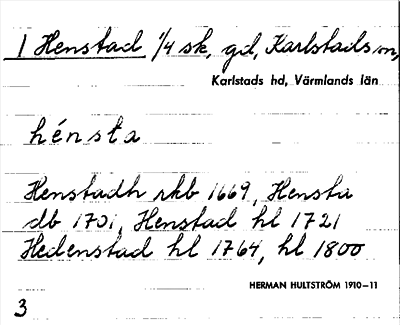 1 Henstad 1/4 sk, gd, Karlstads sn,
Karlstads hd, Värmlands län
hénsta
Henstadh rkb 1669, Hensta
db 1701, Henstad hl 1721
Hedenstad hl 1764, hl 1800
HERMAN HULTSTRÖM 1910–11
3